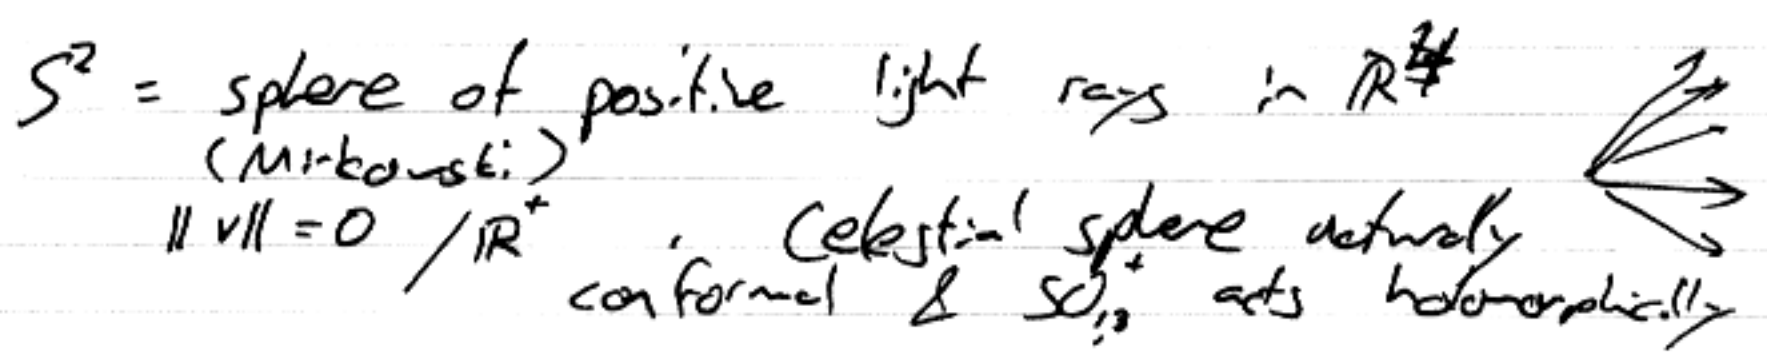 S² = sphere of positive light rays in ℝ⁴
(Minkowski)
||v|| = 0 /ℝ⁺ , Celestial sphere naturally
conformal & SO⁺₁,₃ acts holomorphically